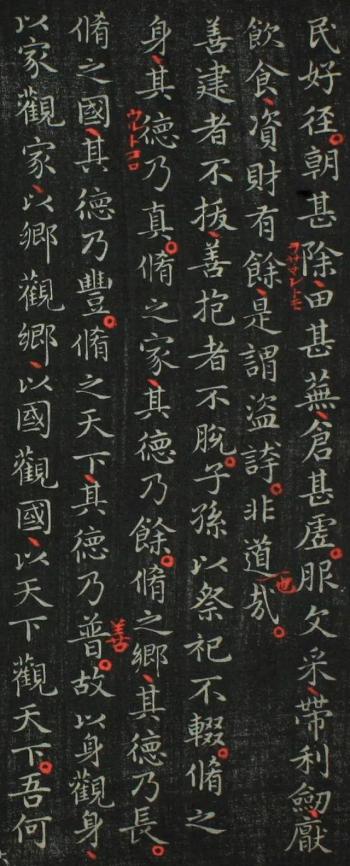 民好径朝甚除田甚蕪倉甚虚服文采帶利劔厭
飲食資財有餘是謂盗誇非道也哉
善建者不拔善抱者不脱子孫以祭祀不輟脩之
身其德乃真脩之家其德乃餘脩之鄉其德乃長
脩之國其德乃豐脩之天下其德乃普故以身觀身
以家觀家以鄉觀鄉以國觀國以天下觀天下吾何